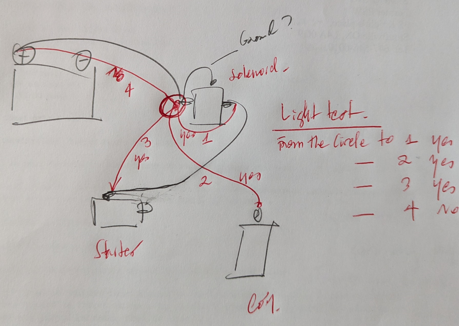 Ground?
Solenoid
+
-
No
4
yes 1
3
yes
2
yes
Starter
Coil
Light test.
From the Circle to 1 yes
— 2 yes
— 3 yes
— 4 No